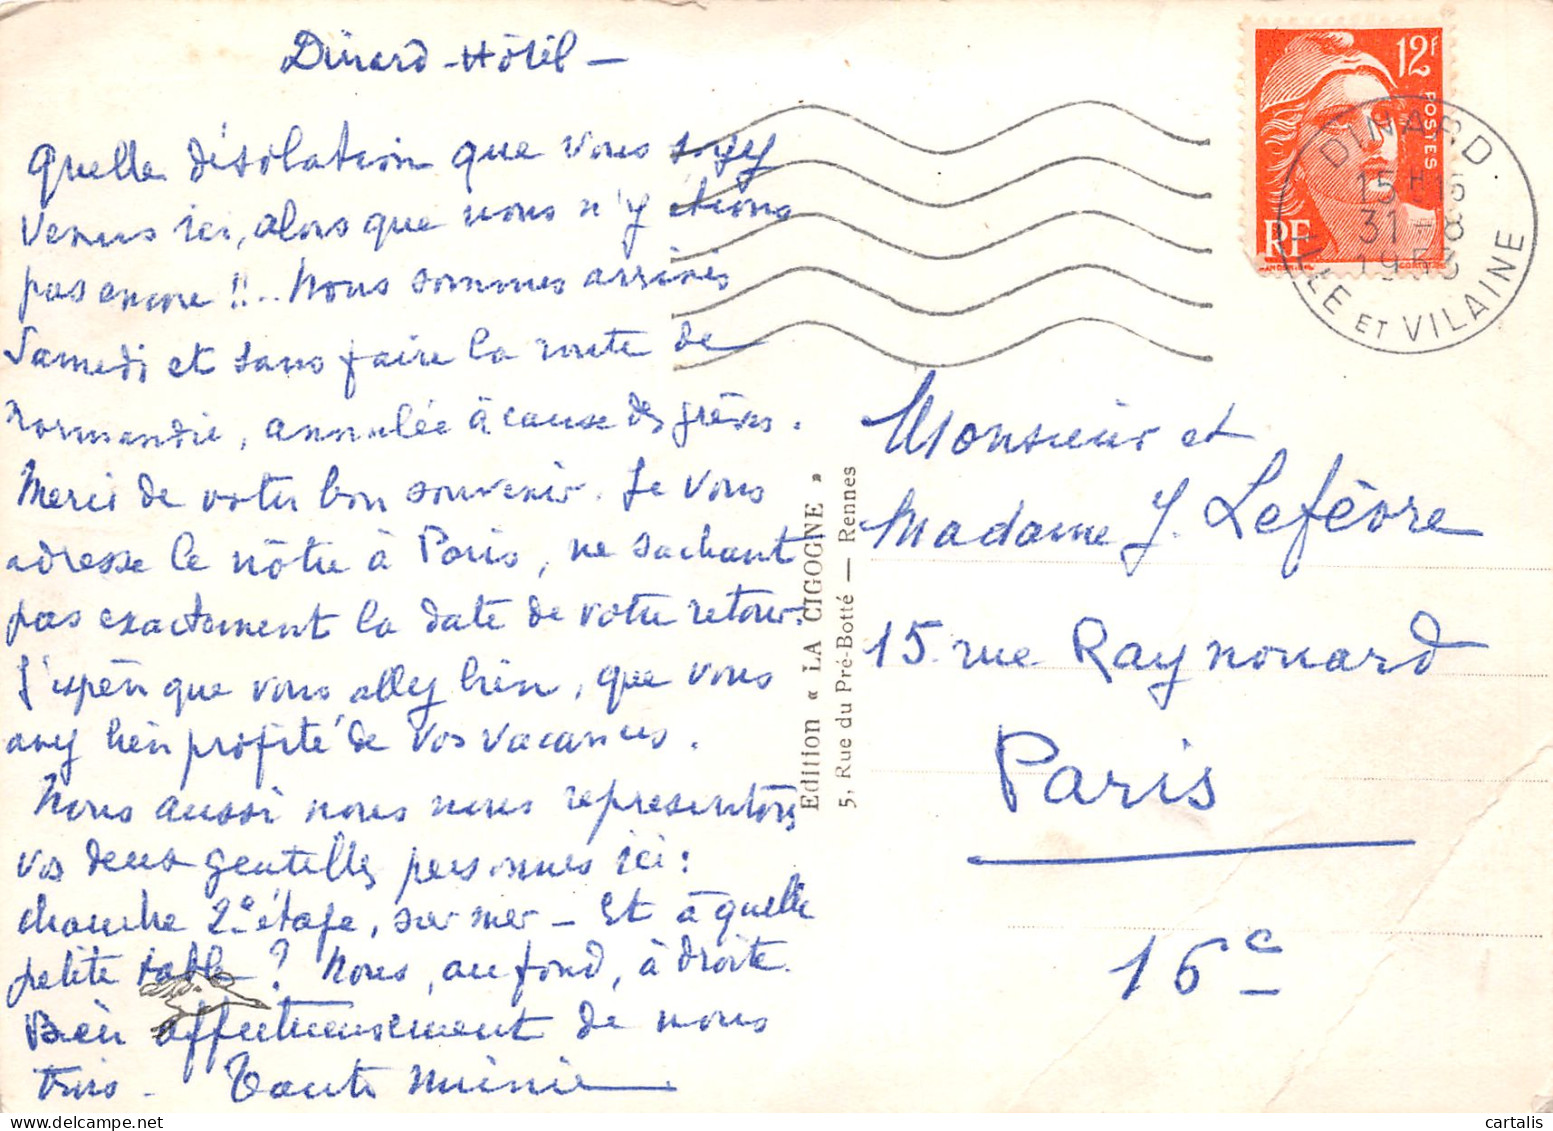 Dinard-Hôtel –
Quelle désolation que vous soyez
venus ici, alors que nous n'y étions
pas encore !!.. Nous sommes arrivés
Samedi et sans faire la route de
Normandie, annulée à cause des grèves.
Merci de votre bon souvenir. Je vous
adresse le nôtre à Paris, ne sachant
pas exactement la date de votre retour.
J'espère que vous allez bien, que vous
avez bien profité de vos vacances.
Nous aussi nous nous représentons
vos deux gentilles personnes ici :
chambre 2e étage, sur mer – Et à quelle
petite table ? Nous, au fond, à droite.
Bien affectueusement de nous
trois – Tante Mimie
12F
POSTES
RF
DINARD
15H15
31-8
1953
ILLE ET VILAINE
Edition « LA CIGOGNE »
5, Rue du Pré-Botté — Rennes
Monsieur et
Madame J. Lefèvre
15 rue Raynouard
Paris
16e
cartalis